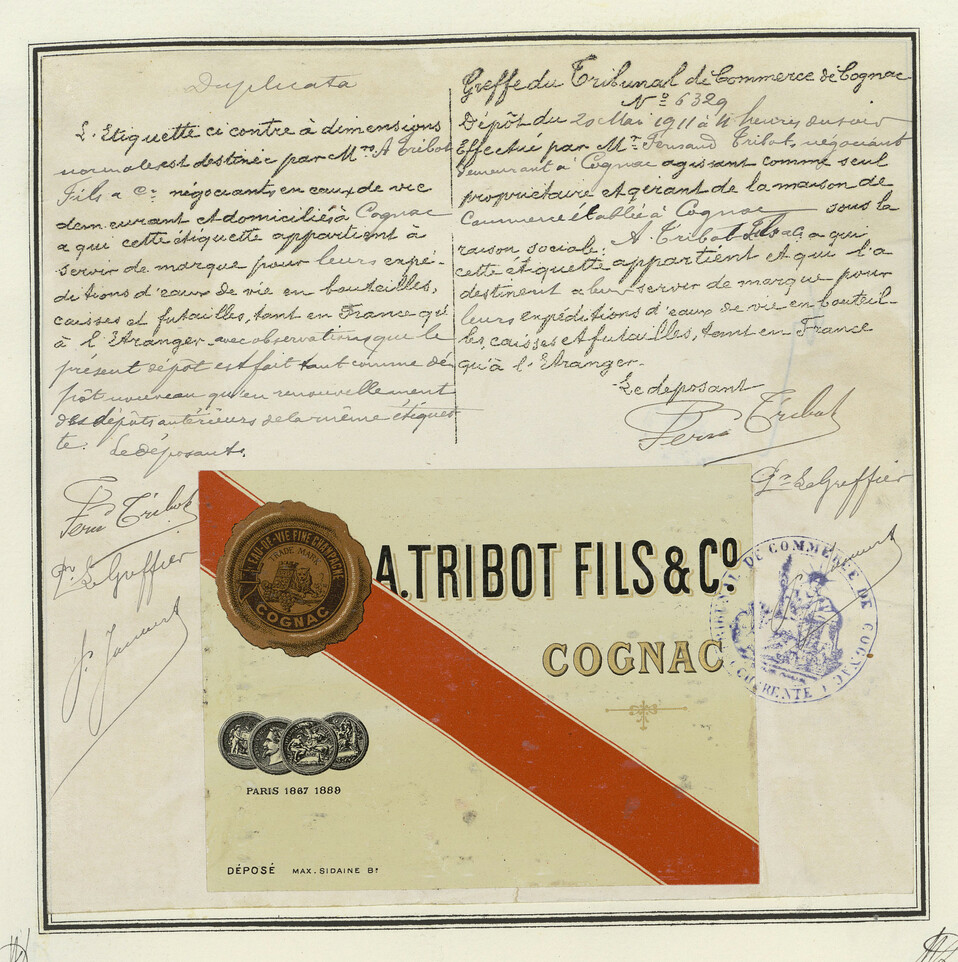 Duplicata
L'Etiquette ci contre à dimensions
normales est destinée par Mrs A Tribot
Fils & Co négociants en eaux de vie
demeurant et domiciliés à Cognac
a qui cette étiquette appartient à
servir de marque pour leurs expé-
ditions d'eaux de vie en bouteilles,
caisses et futailles, tant en France qu'
à l'Etranger avec observations que le
présent dépôt est fait tant comme dé
pôt nouveau qu'en renouvellement
des dépôts antérieurs de la même étiquet
te. Le déposant.
Fern Tribot
Pr Le Greffier
Greffe du Tribunal de Commerce de Cognac
No 6329
Dépôt du 20 Mai 1911 à 4 heures du soir
Effectué par Mr Fernand Tribot, négociant
demeurant à Cognac agissant comme seul
propriétaire et gérant de la maison de
Commerce établie à Cognac sous la
raison sociale: A Tribot Fils & Co a qui
cette étiquette appartient et qui l'a
destinent a leur servir de marque pour
leurs expéditions d'eaux de vie en bouteil-
les, caisses et futailles, tant en France
qu'à l'Etranger.
Le deposant
Fern Tribot
Pr Le Greffier
EAU-DE-VIE FINE CHAMPAGNE
TRADE MARK
COGNAC
A. TRIBOT FILS & Co.
COGNAC
PARIS 1867 1889
DÉPOSÉ MAX. SIDAINE Bx
TRIBUNAL DE COMMERCE DE COGNAC
(CHARENTE)